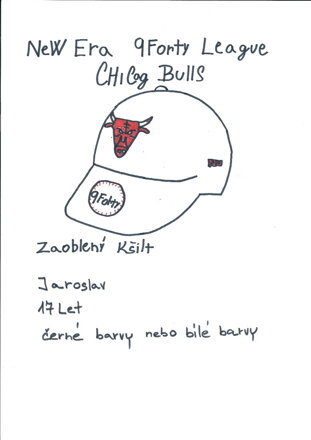 NeW Era 9Forty League
CHICag BullS
9Forty
Zaoblený Kšilt
Jaroslav
17 Let
černé barvy nebo bílé barvy